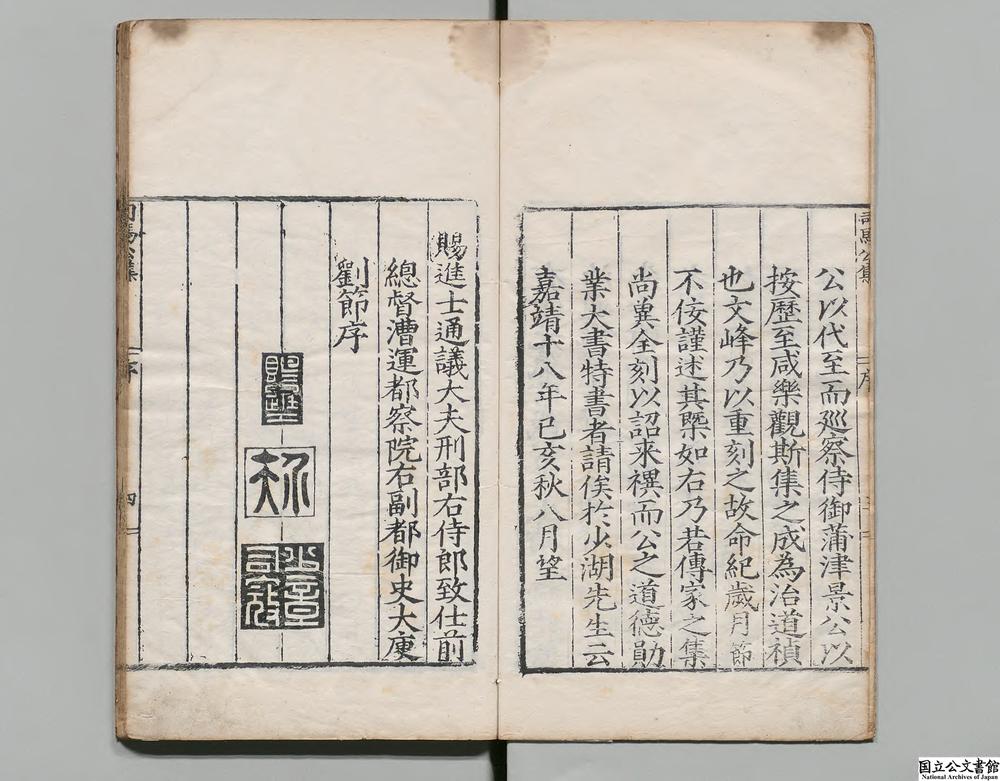 公以代至而廵察侍御蒲津景公以
按歷至咸樂觀斯集之成為治道禎
也文峰乃以重刻之故命紀歲月節
不佞謹述其槩如右乃若傳家之集
尚兾全刻以詔来禩而公之道德勛
業大書特書者請俟扵少湖先生云
嘉靖十八年己亥秋八月望
賜進士通議大夫刑部右侍郎致仕前
總督漕運都察院右副都御史大庾
劉節序
司馬公集
序
四
国立公文書館
National Archives of Japan